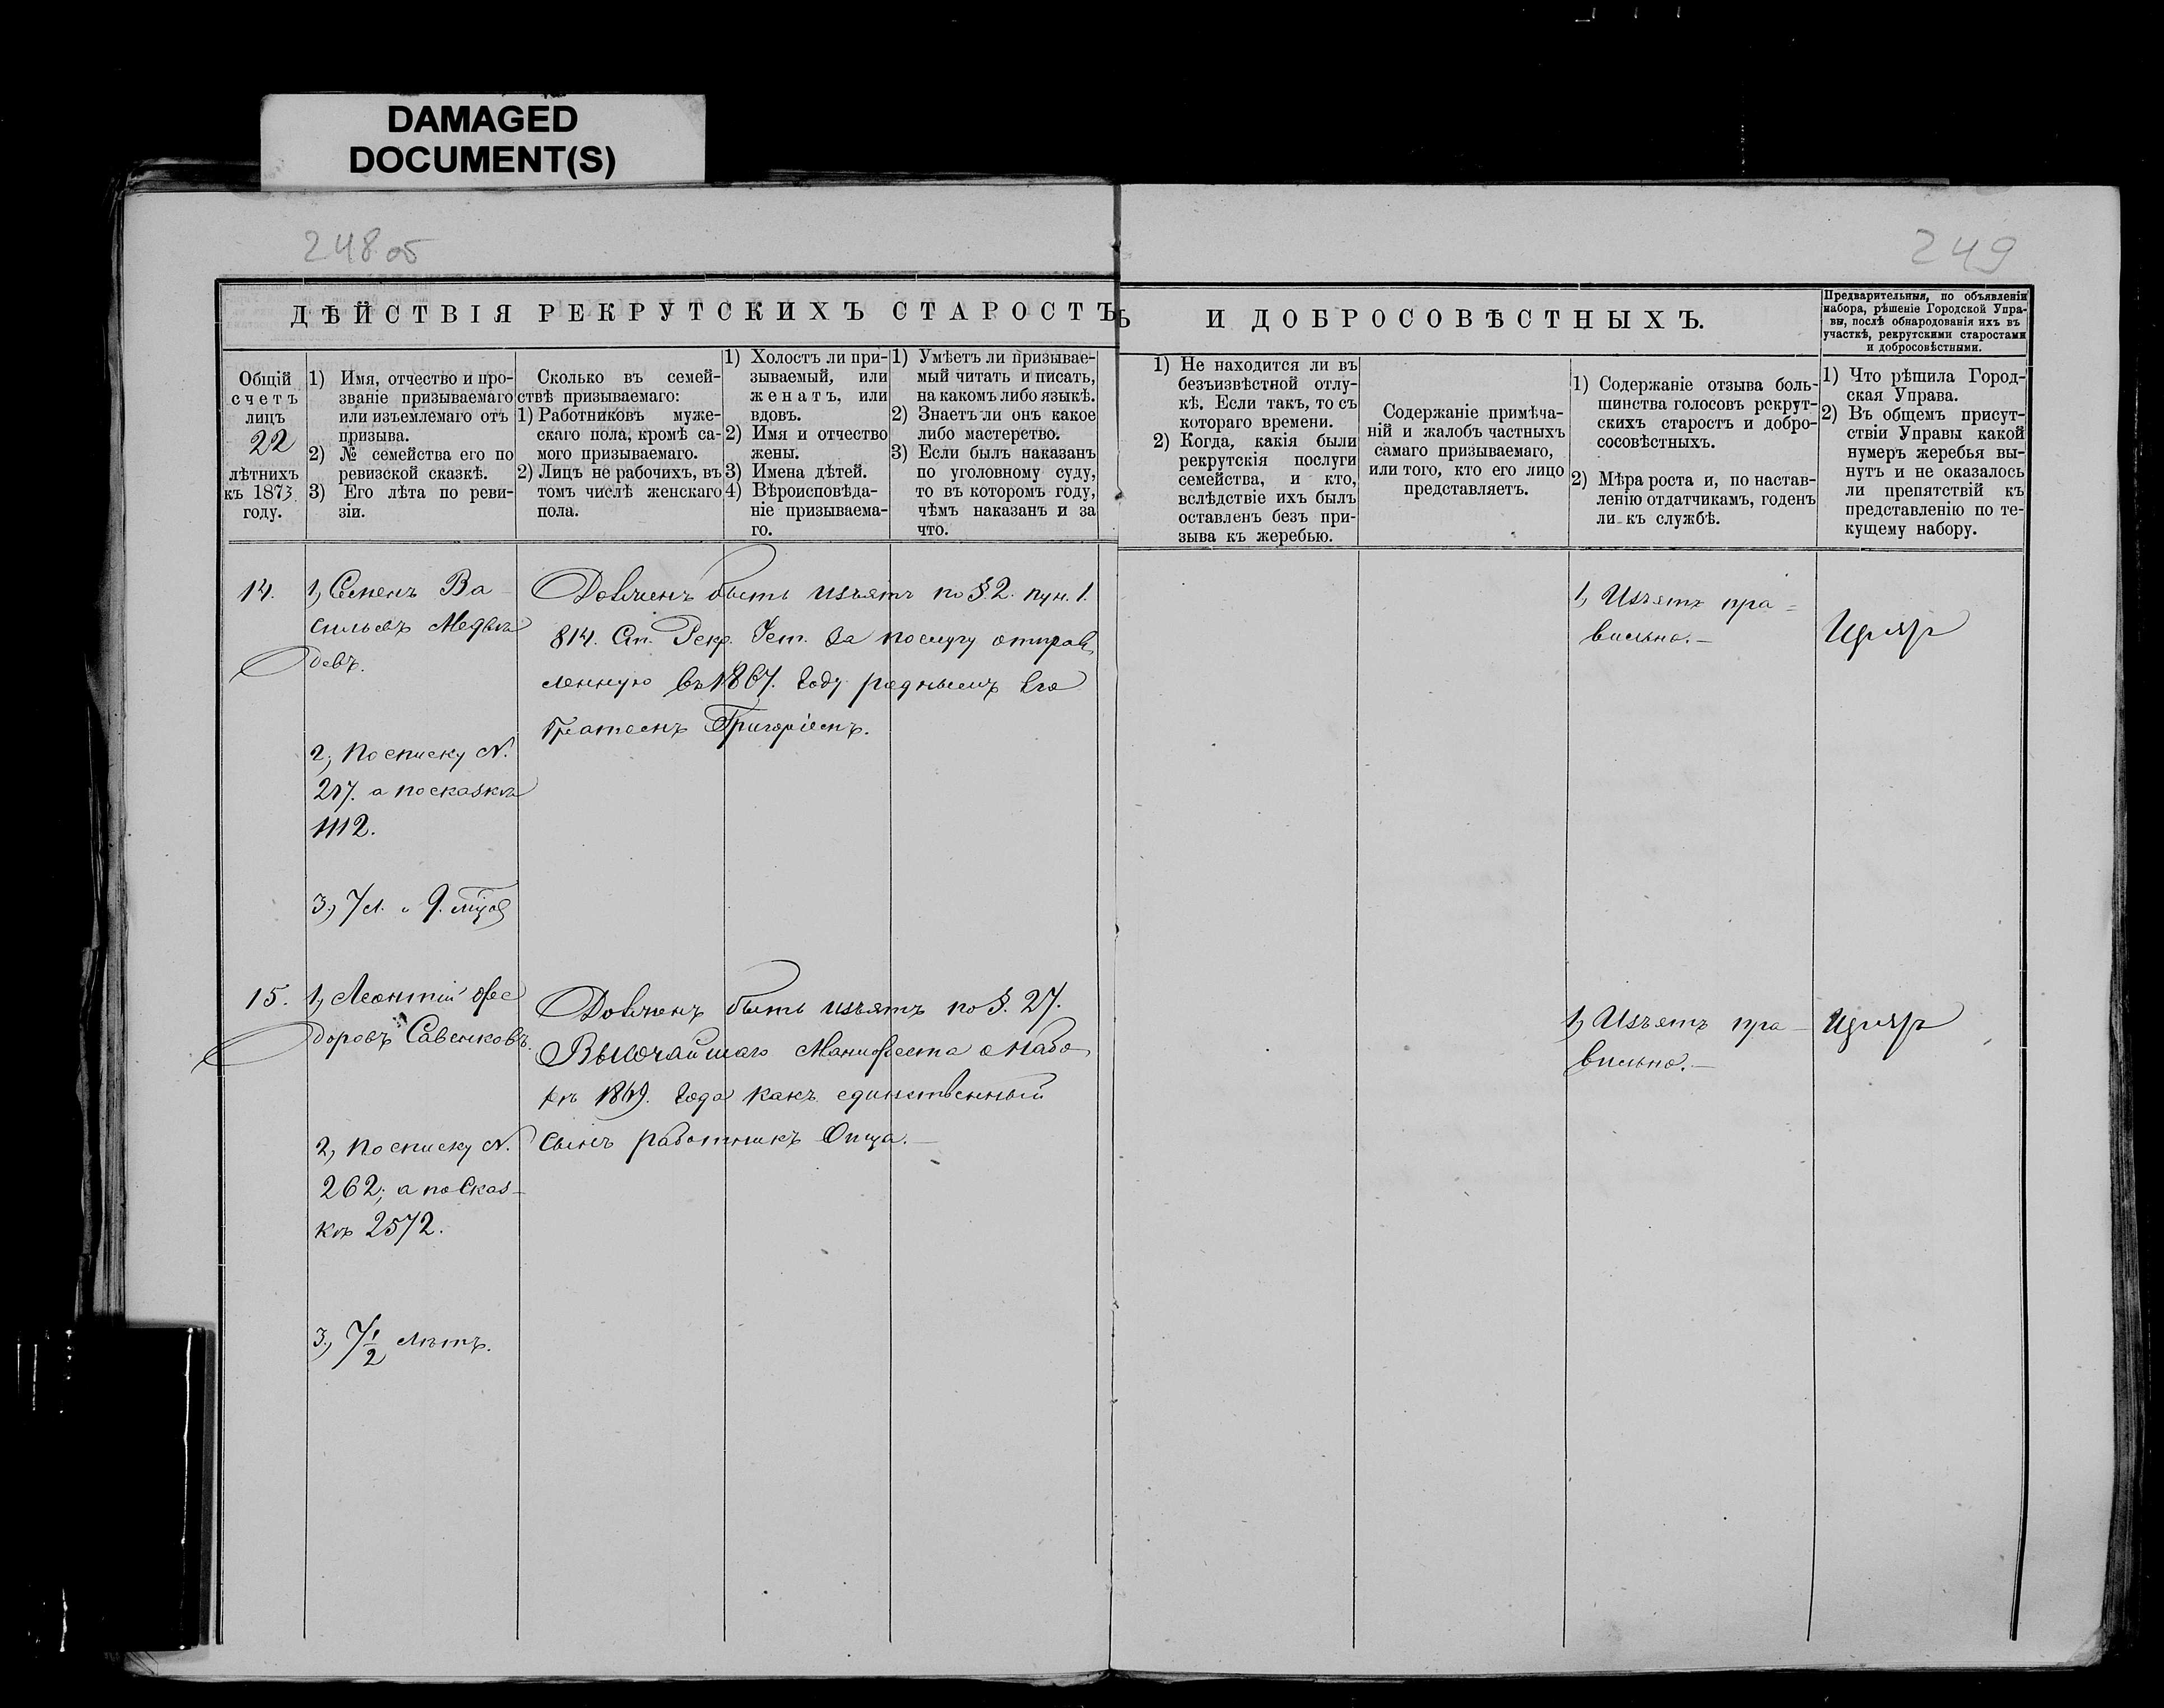 DAMAGED
DOCUMENT(S)
248 об
249
ДѢЙСТВІЯ РЕКРУТСКИХЪ СТАРОСТЪ
И ДОБРОСОВѢСТНЫХЪ.
Предварительныя, по объявленіи
набора, рѣшеніе Городской Упра-
вы, послѣ обнародованія ихъ въ
участкѣ, рекрутскими старостами
и добросовѣстными.
Общій
счетъ
лицъ
22
лѣтнихъ
къ 1873
году.
1) Имя, отчество и про-
званіе призываемаго
или изъемлемаго отъ
призыва.
2) № семейства его по
ревизской сказкѣ.
3) Его лѣта по реви-
зіи.
Сколько въ семей-
ствѣ призываемаго:
1) Работниковъ муже-
скаго пола, кромѣ са-
мого призываемаго.
2) Лицъ не рабочихъ, въ
томъ числѣ женскаго
пола.
1) Холостъ ли при-
зываемый, или
женатъ, или
вдовъ.
2) Имя и отчество
жены.
3) Имена дѣтей.
4) Вѣроисповѣда-
ніе призываема-
го.
1) Умѣетъ ли призывае-
мый читать и писать,
на какомъ либо языкѣ.
2) Знаетъ ли онъ какое
либо мастерство.
3) Если былъ наказанъ
по уголовному суду,
то въ которомъ году,
чѣмъ наказанъ и за
что.
1) Не находится ли въ
безъизвѣстной отлу-
кѣ. Если такъ, то съ
котораго времени.
2) Когда, какія были
рекрутскія послуги
семейства, и кто,
вслѣдствіе ихъ былъ
оставленъ безъ при-
зыва къ жеребью.
Содержаніе примѣча-
ній и жалобъ частныхъ
самаго призываемаго,
или того, кто его лицо
представляетъ.
1) Содержаніе отзыва боль-
шинства голосовъ рекрут-
скихъ старостъ и добро-
сосовѣстныхъ.
2) Мѣра роста и, по настав-
ленію отдатчикамъ, годенъ
ли къ службѣ.
1) Что рѣшила Город-
ская Управа.
2) Въ общемъ присут-
ствіи Управы какой
нумеръ жеребья вы-
нутъ и не оказалось
ли препятствій къ
представленію по те-
кущему набору.
14.
1, Семенъ Ва-
сильевъ Медвѣ
девъ.
2, По списку N.
217. а по сказкѣ
1112.
3, 7 л. и 9. мцов
Долженъ быть изъятъ по §. 2. пун. 1.
814. Ст. Рекр. Уст. За послугу отправ
ленную въ 1867. году роднымъ его
братомъ Григоріемъ.
1, Изъятъ пра=
вильно.—
15.
1, Леонтій Фео
доровъ Савенковъ.
2, По списку N.
262; а по Сказ-
кѣ 2572.
3, 7 1/2 лѣтъ.
Долженъ быть изъятъ по §. 27.
Высочайшаго Манифеста о набо
рѣ 1869. года какъ единственный
сынъ работникъ Отца.—
1, Изъятъ пра-
вильно.—